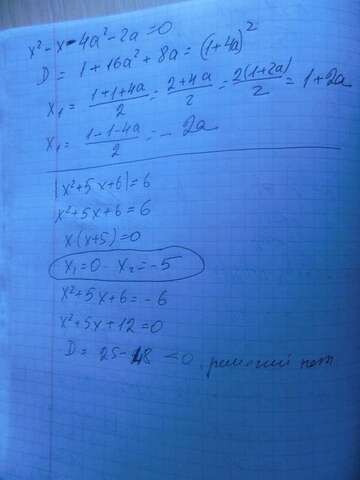 x² - x - 4a² - 2a = 0
D = 1 + 16a² + 8a = (1+4a)²
x₁ = (1+1+4a)/2 = (2+4a)/2 = 2(1+2a)/2 = 1+2a
x₁ = (1-1-4a)/2 = -2a
|x²+5x+6| = 6
x²+5x+6 = 6
x(x+5) = 0
x₁ = 0 x₂ = -5
x²+5x+6 = -6
x²+5x+12 = 0
D = 25-48 < 0, решений нет